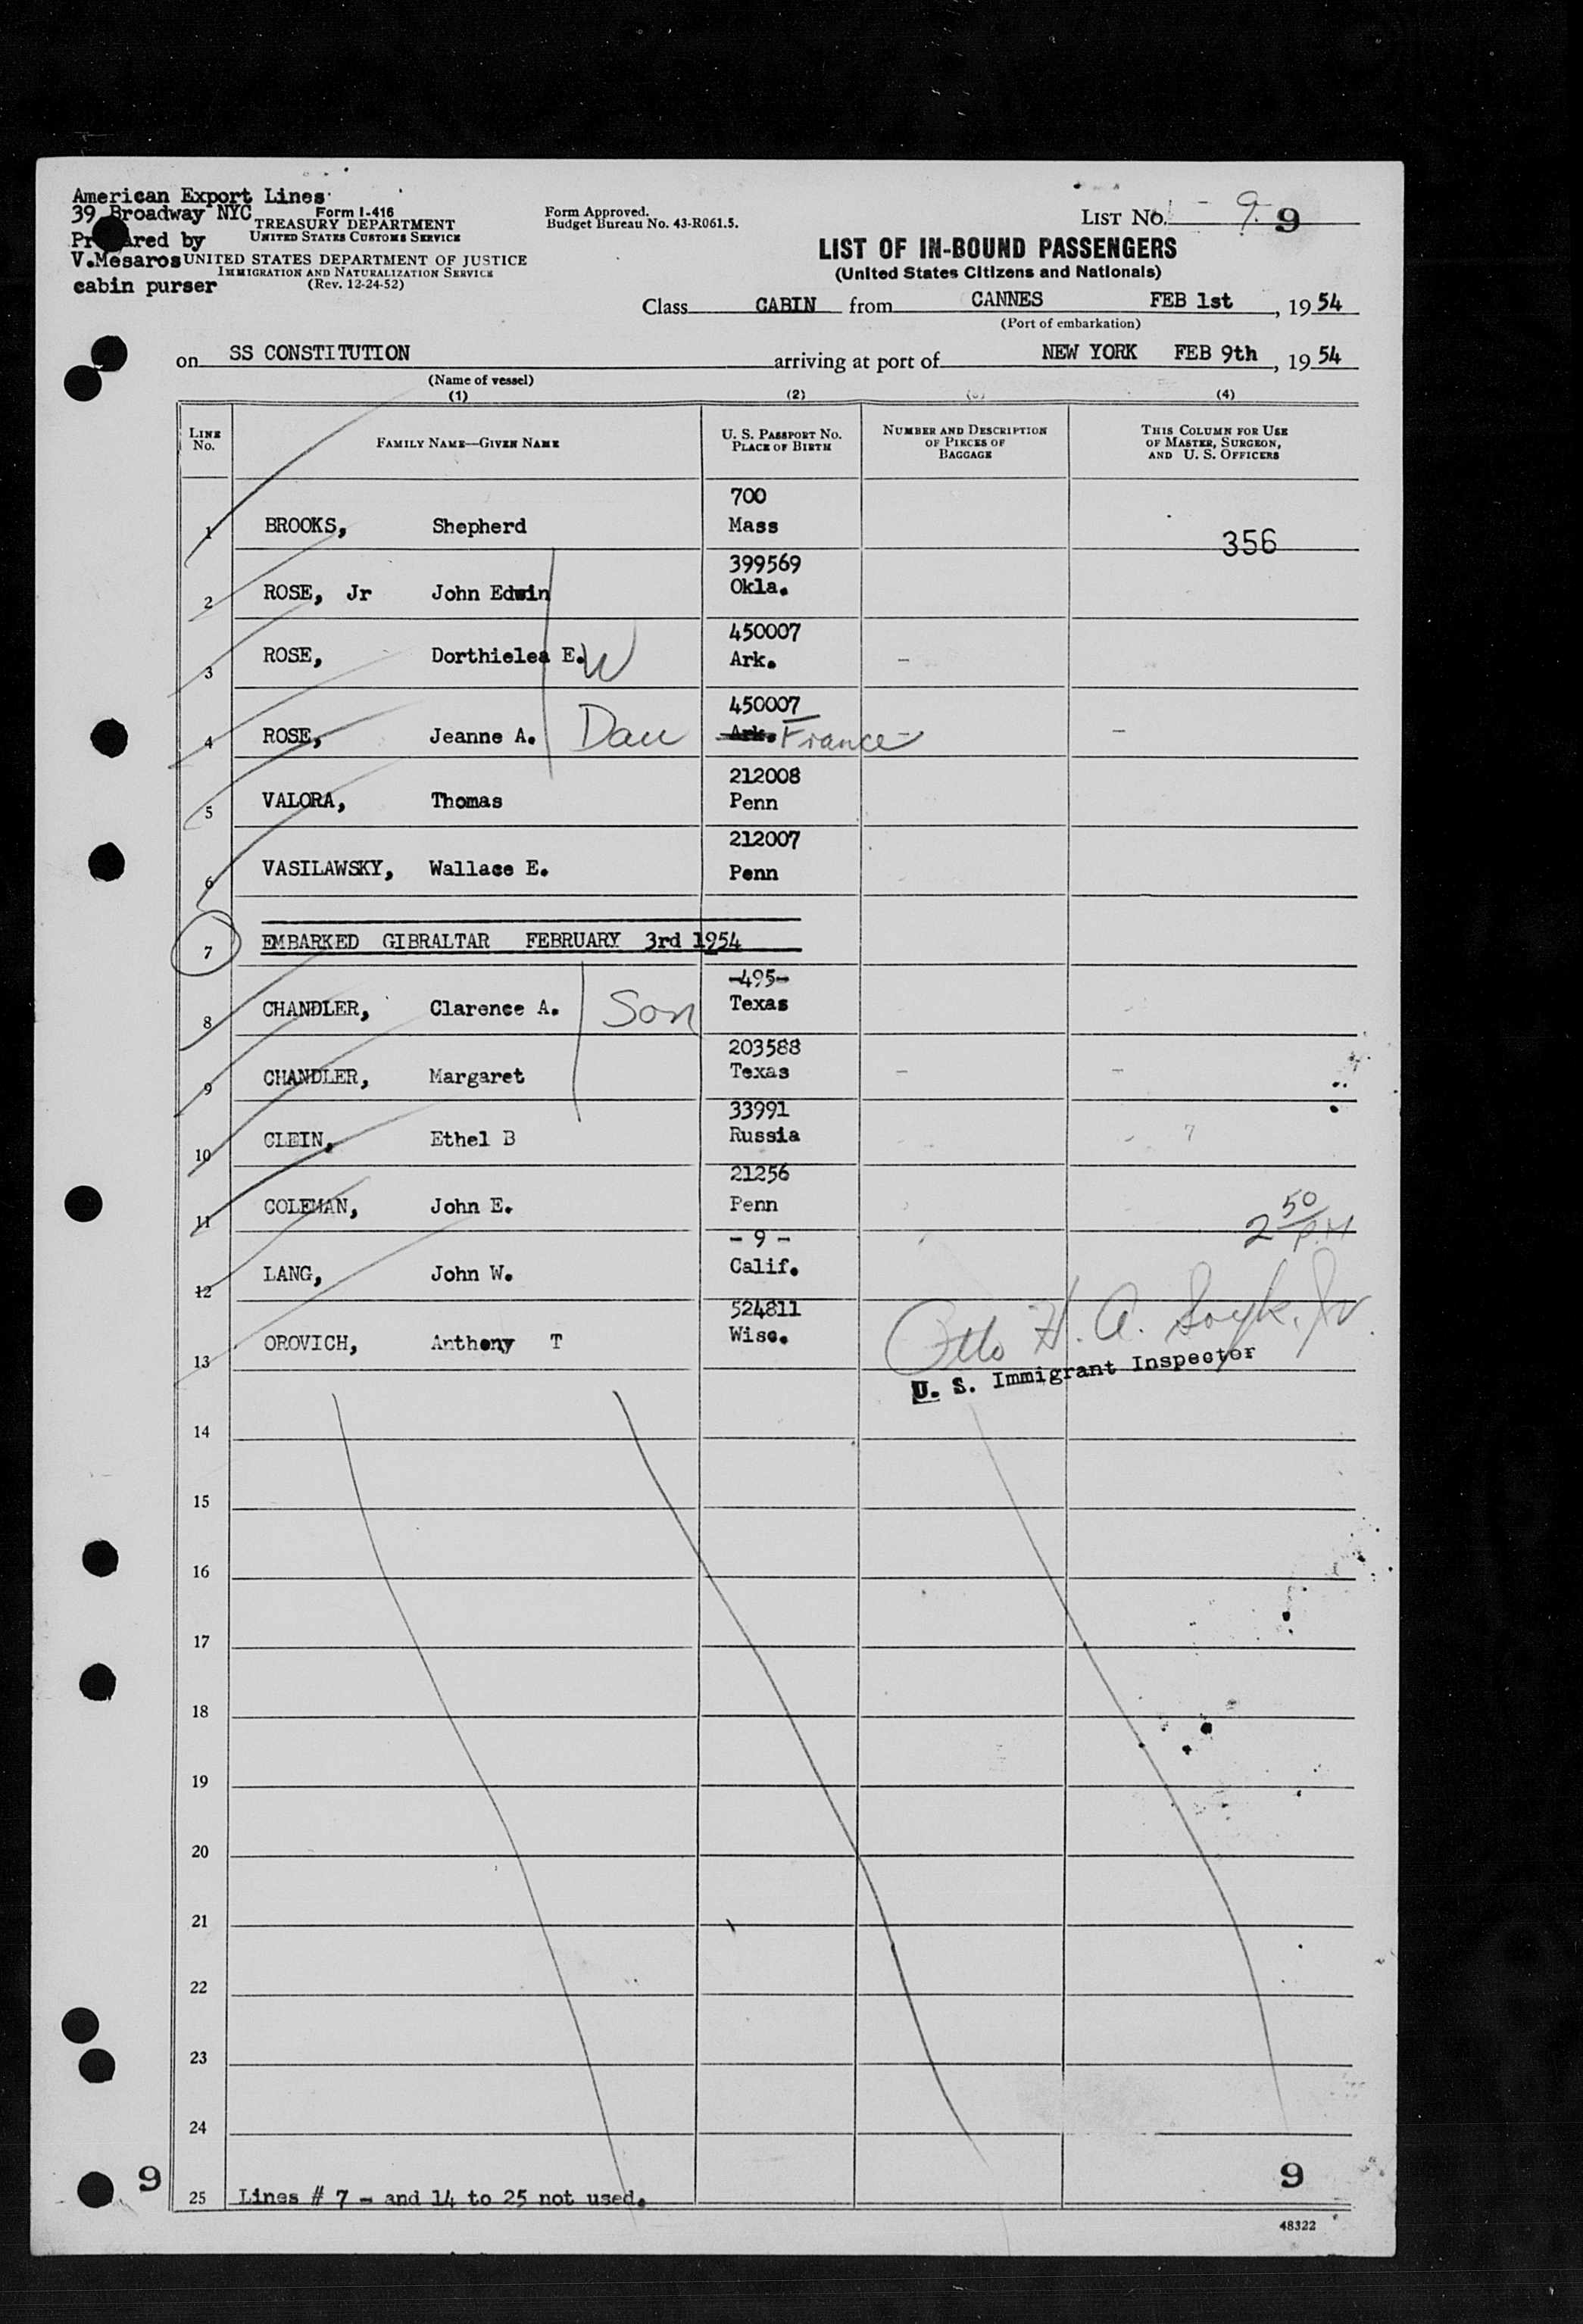 American Export Lines
39 Broadway NYC
Form I-416
TREASURY DEPARTMENT
Prepared by UNITED STATES CUSTOMS SERVICE
V.Mesaros UNITED STATES DEPARTMENT OF JUSTICE
IMMIGRATION AND NATURALIZATION SERVICE
cabin purser (Rev. 12-24-52)
Form Approved.
Budget Bureau No. 43-R061.5.
LIST No. 9 9
LIST OF IN-BOUND PASSENGERS
(United States Citizens and Nationals)
Class CABIN from CANNES FEB 1st, 1954
(Port of embarkation)
on SS CONSTITUTION arriving at port of NEW YORK FEB 9th, 1954
(Name of vessel)
(1) (2) (3) (4)
LINE No. FAMILY NAME—GIVEN NAME U. S. PASSPORT No. PLACE OF BIRTH NUMBER AND DESCRIPTION OF PIECES OF BAGGAGE THIS COLUMN FOR USE OF MASTER, SURGEON, AND U. S. OFFICERS
700
1 BROOKS, Shepherd Mass 356
399569
2 ROSE, Jr John Edwin Okla.
450007
3 ROSE, Dorthielea E. W Ark. -
450007
4 ROSE, Jeanne A. Dau Ark. France -
212008
5 VALORA, Thomas Penn
212007
6 VASILAWSKY, Wallace E. Penn
7 EMBARKED GIBRALTAR FEBRUARY 3rd 1954
-495-
8 CHANDLER, Clarence A. Son Texas
203588
9 CHANDLER, Margaret Texas - -
33991
10 CLEIN, Ethel B Russia
21256
11 COLEMAN, John E. Penn 2 50/P.M
- 9 -
12 LANG, John W. Calif.
524811
13 OROVICH, Anthony T Wisc.
Otto H. A. Jr.
U. S. Immigrant Inspector
14
15
16
17
18
19
20
21
22
23
24
9 9
25 Lines # 7 - and 14 to 25 not used.
48322